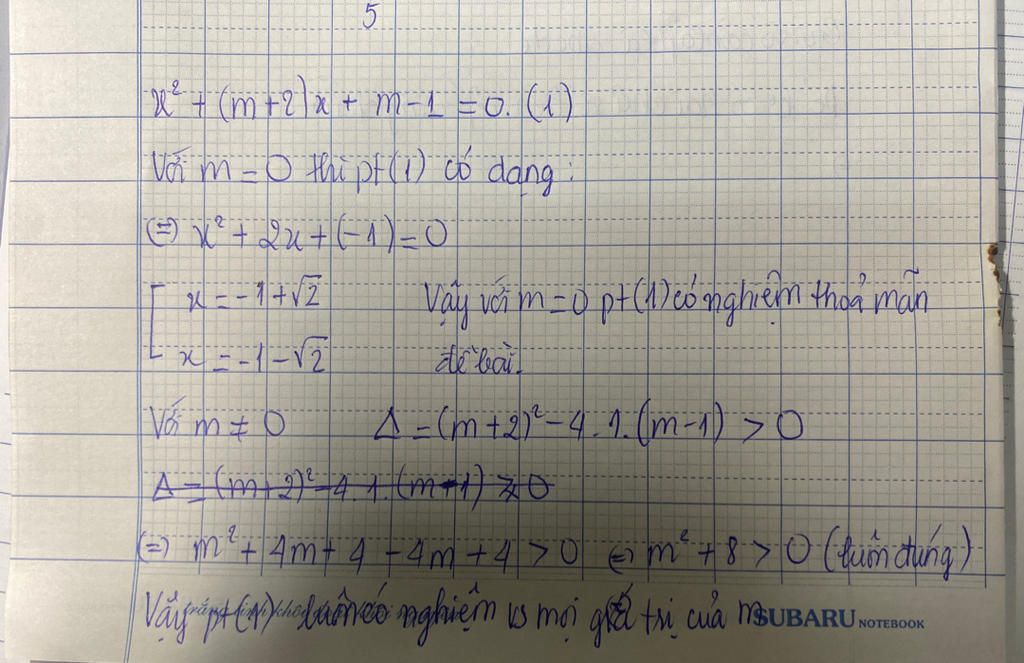 5
x² + (m+2)x + m-1 = 0. (1)
Với m = 0 thì pt(1) có dạng:
(=) x² + 2x + (-1) = 0
x = -1 + √2
x = -1 - √2
Vậy với m = 0 pt(1) có nghiệm thoả mãn
đề bài.
Với m ≠ 0 Δ = (m+2)² - 4.1.(m-1) > 0
(=) m² + 4m + 4 - 4m + 4 > 0 (=) m² + 8 > 0 (luôn đúng)
Vậy pt(1) luôn có nghiệm vs mọi giá trị của m
SUBARU NOTEBOOK